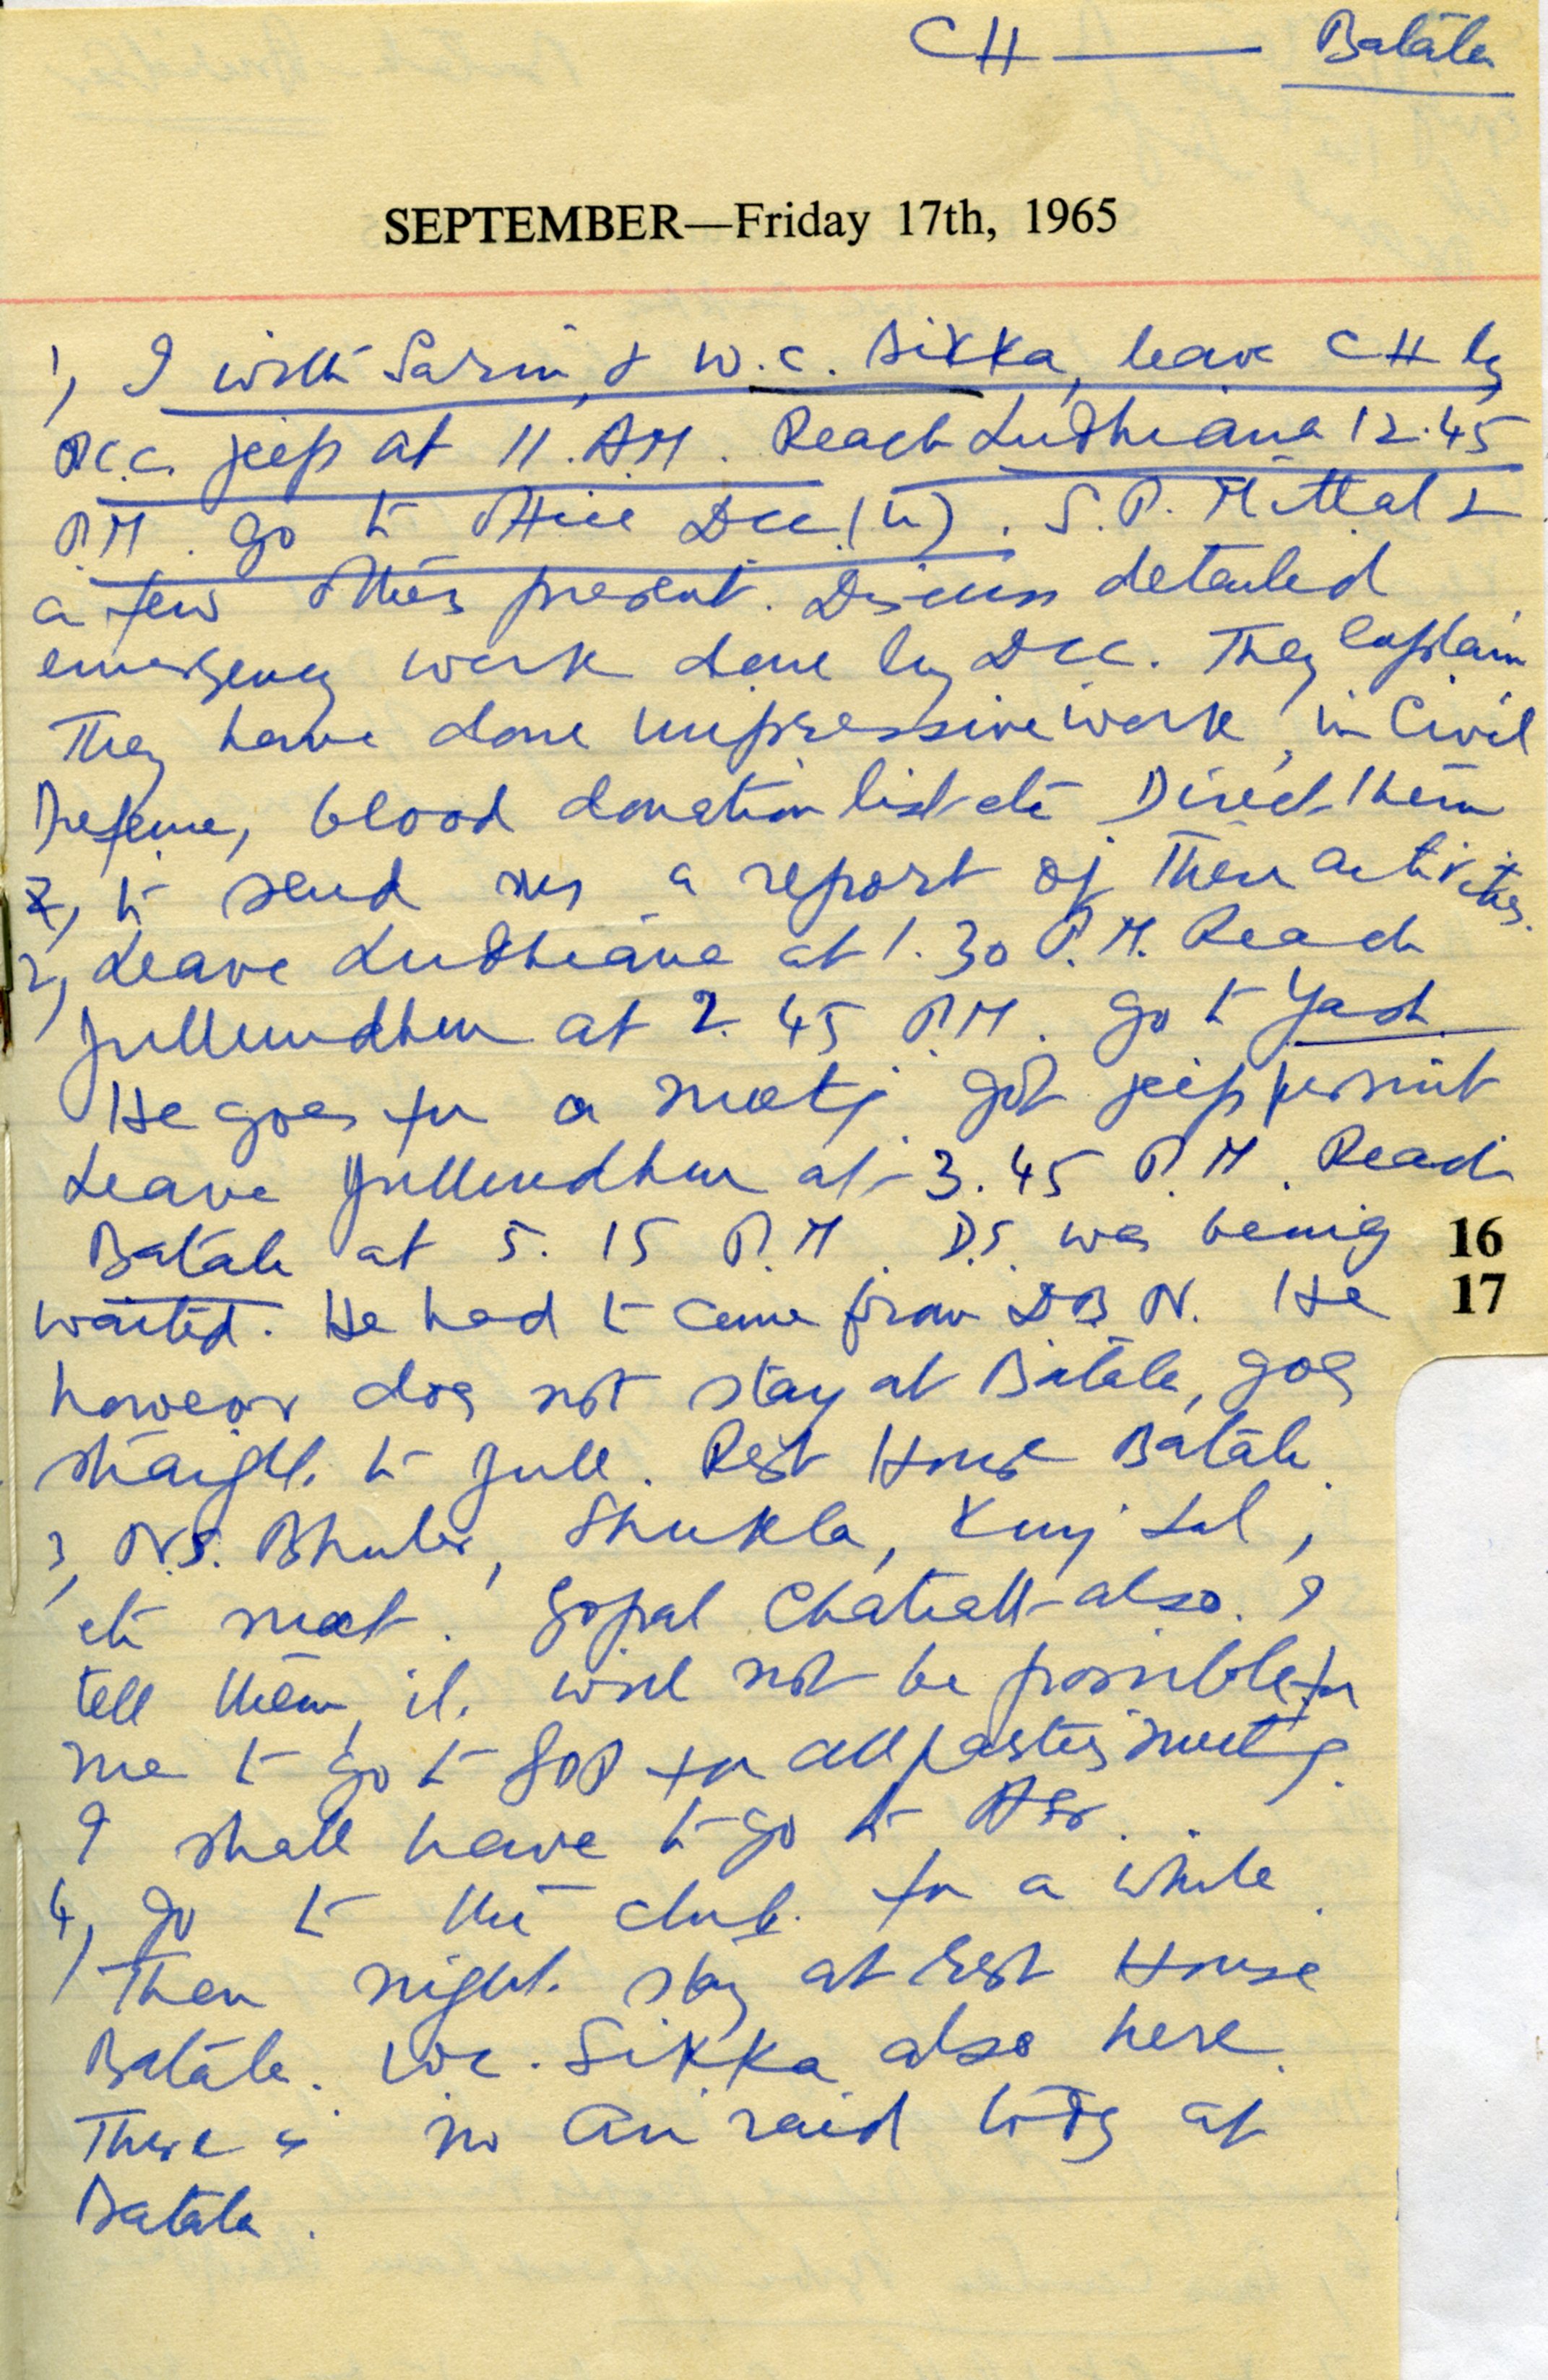 CH — Batala
SEPTEMBER—Friday 17th, 1965
1, I with Sarin, & W.C. Sikka, leave CH by
P.C.C. jeep at 11. A.M. Reach Ludhiana 12.45
P.M. go to Office DCC (U). S.P. Mittal &
a few others present. Discuss detailed
emergency work done by DCC. They explain
They have done impressive work, in Civil
Defence, blood donation list etc Direct them
to send me a report of their activities.
2, Leave Ludhiana at 1.30 P.M. Reach
Jullundhur at 2.45 P.M. go to Yash
He goes for a meetg. Got jeep permit
Leave Jullundhur at 3.45 P.M. Reach
Batala at 5.15 P.M. D.S. was being
16
waited. He had to come from DBN. He
17
however does not stay at Batala, goes
straight to Jull. Rest House Batala.
3, N.S. Bhuler, Shukla, Kunj Lal,
etc meet. Gopal also. I
tell them, it will not be possible for
me to go to GSP for all parties meetg.
I shall have to go to Asr.
4, go to the club for a while.
Then night stay at Rest House
Batala. W.C. Sikka also here.
There is no Air raid today at
Batala.